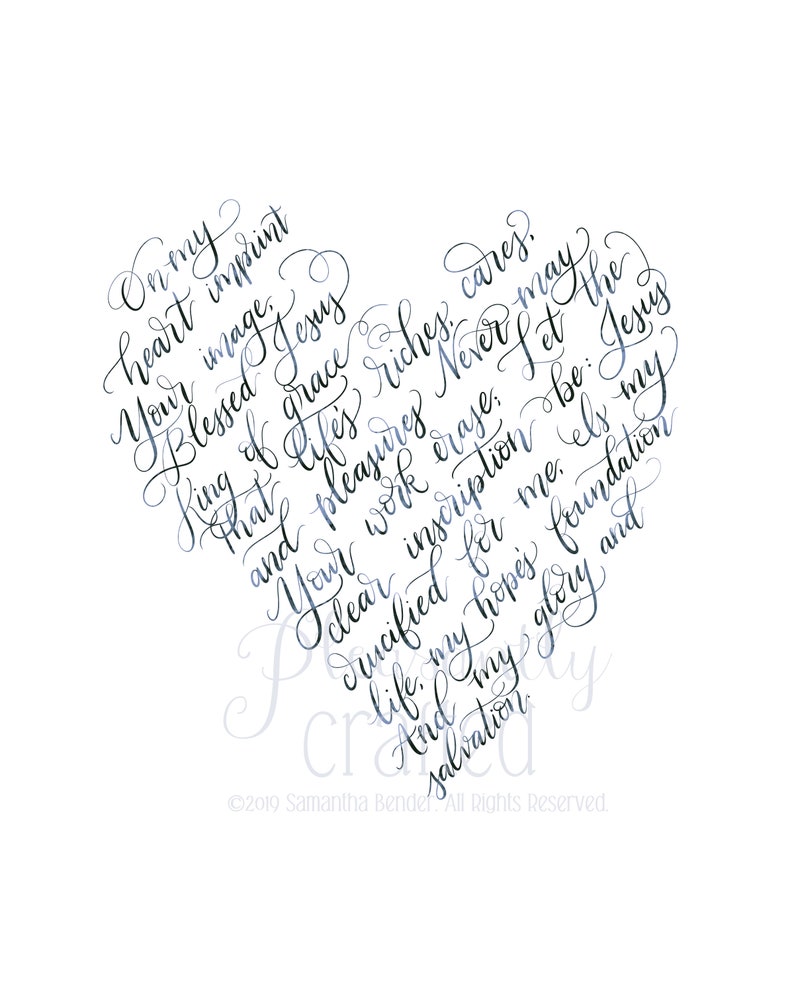 On my
heart imprint
Your image,
Blessed Jesus
King of grace
That life's riches, cares,
and pleasures Never may
Your work erase; Let the
clear inscription be: Jesus
crucified for me, Is my
life, my hope's foundation
And my glory and
salvation.
Pleasantly
crafted
©2019 Samantha Bender. All Rights Reserved.